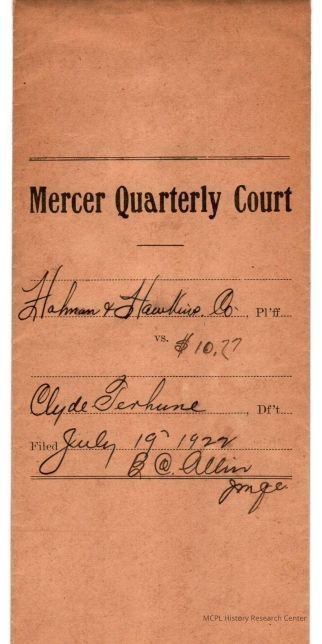 Mercer Quarterly Court
Hohman & Hawkins Co., Pl'ff.
vs. $10.77
Clyde Terhune, Df't.
Filed July 19" 1922
B C. Allin
MCPL History Research Center